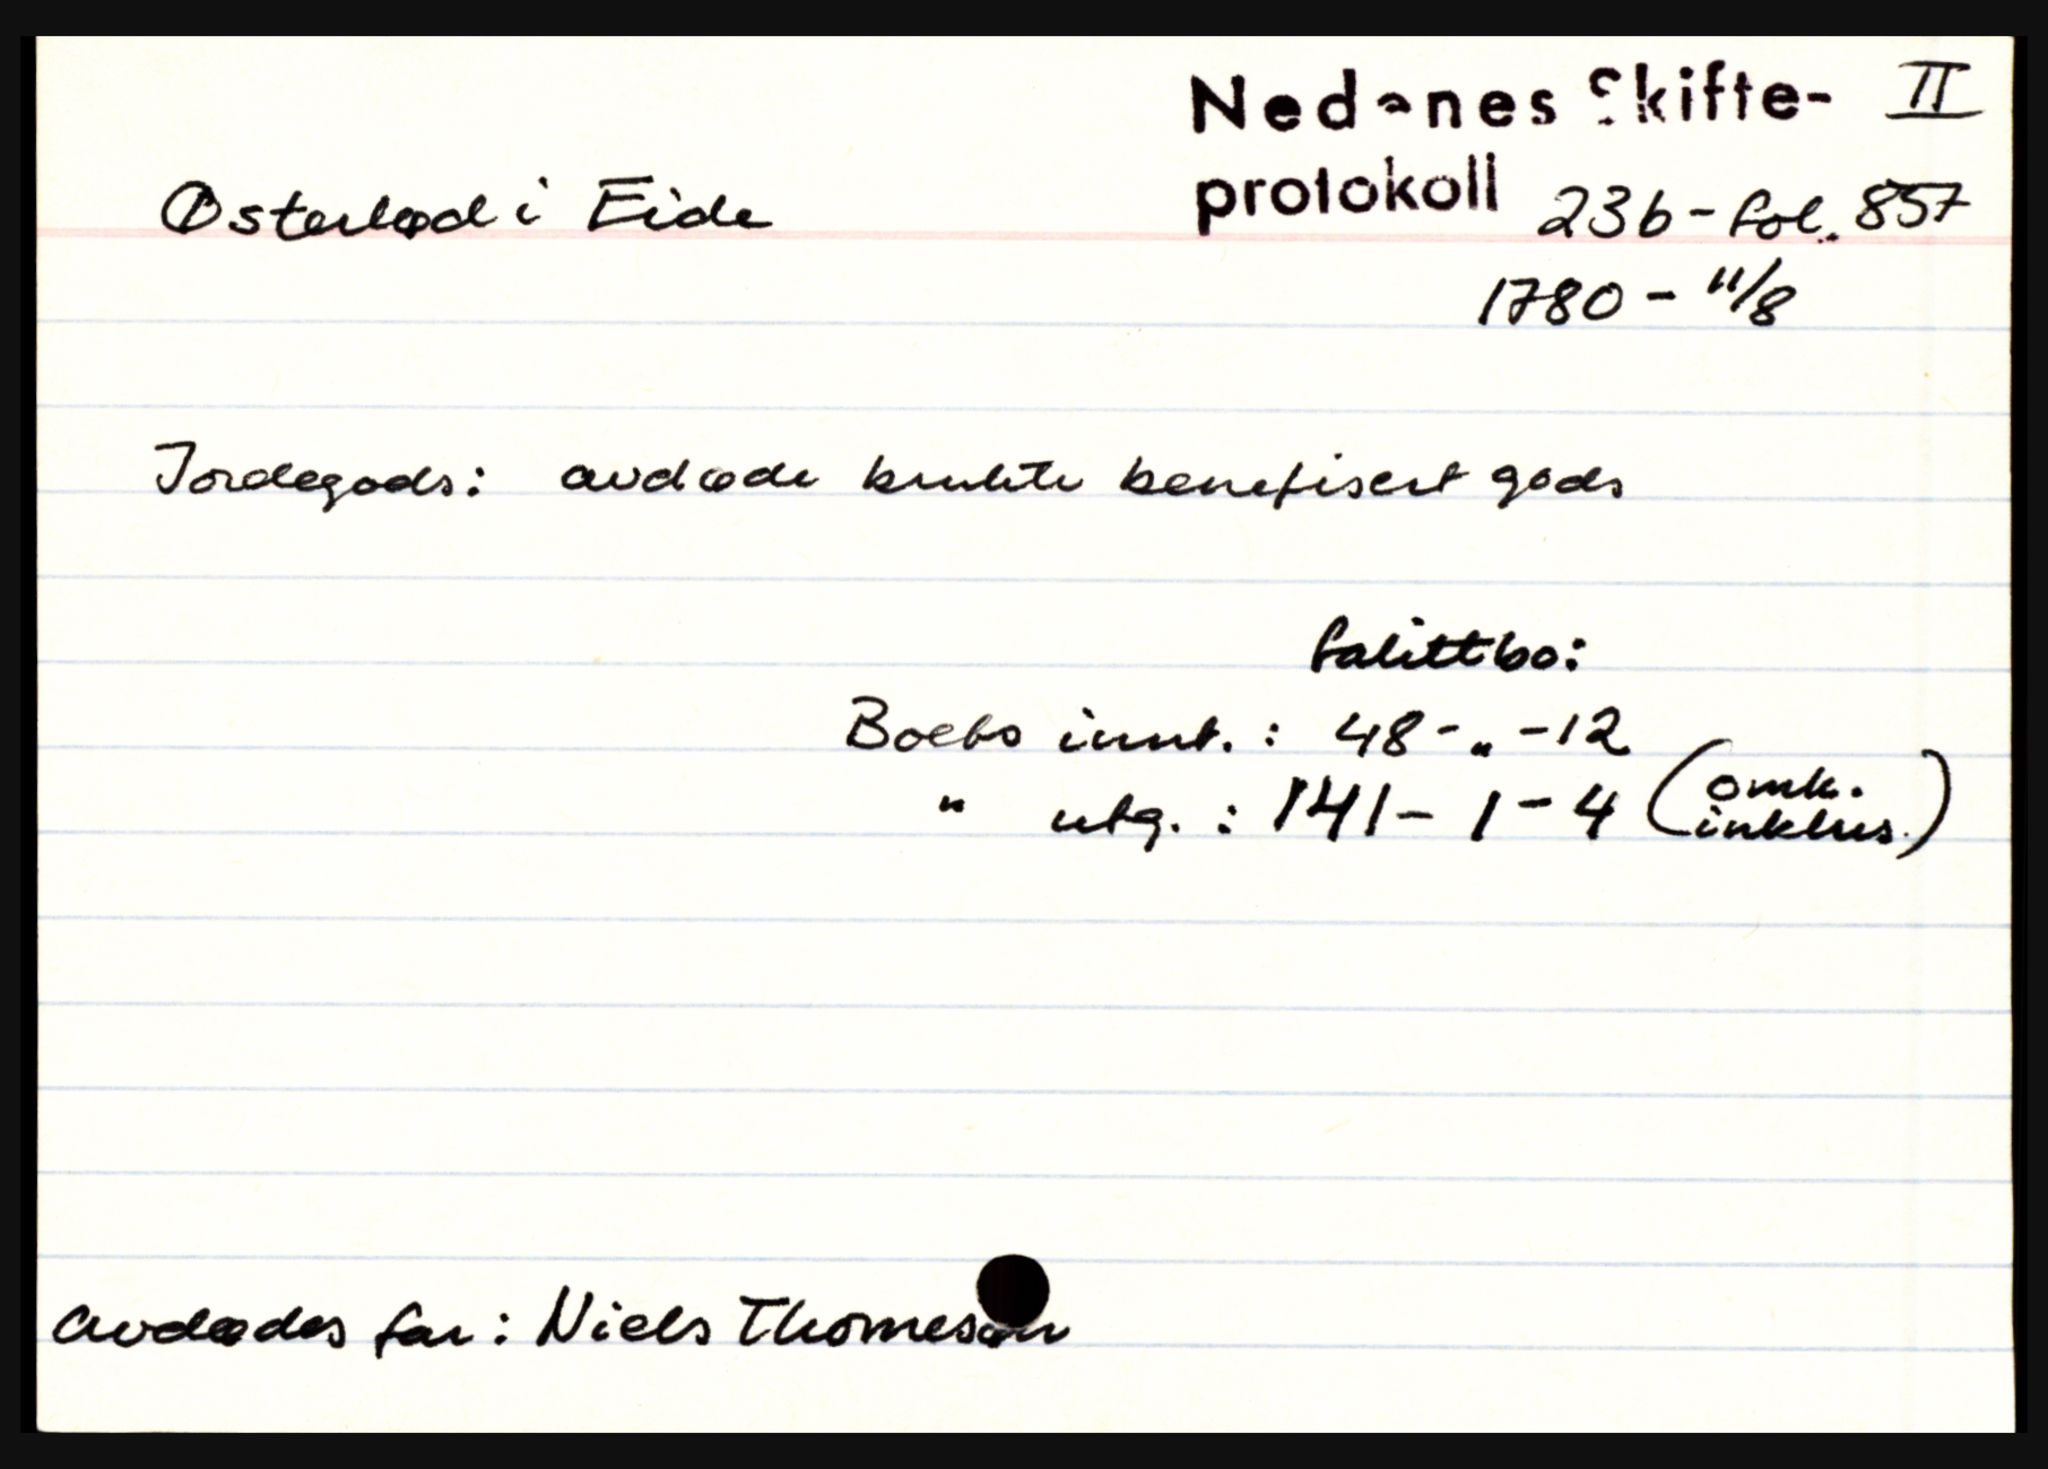 Nedenes Skifte- II
protokoll 23b - fol. 857
Østerlød i Eide
1780 - 11/8
Jordegods: avdøde brukte benefisert gods
fallittbo:
Boets innt. : 48 - " - 12
" utg. : 141 - 1 - 4 (omk. inklus.)
avdødes far: Niels Thomesøn